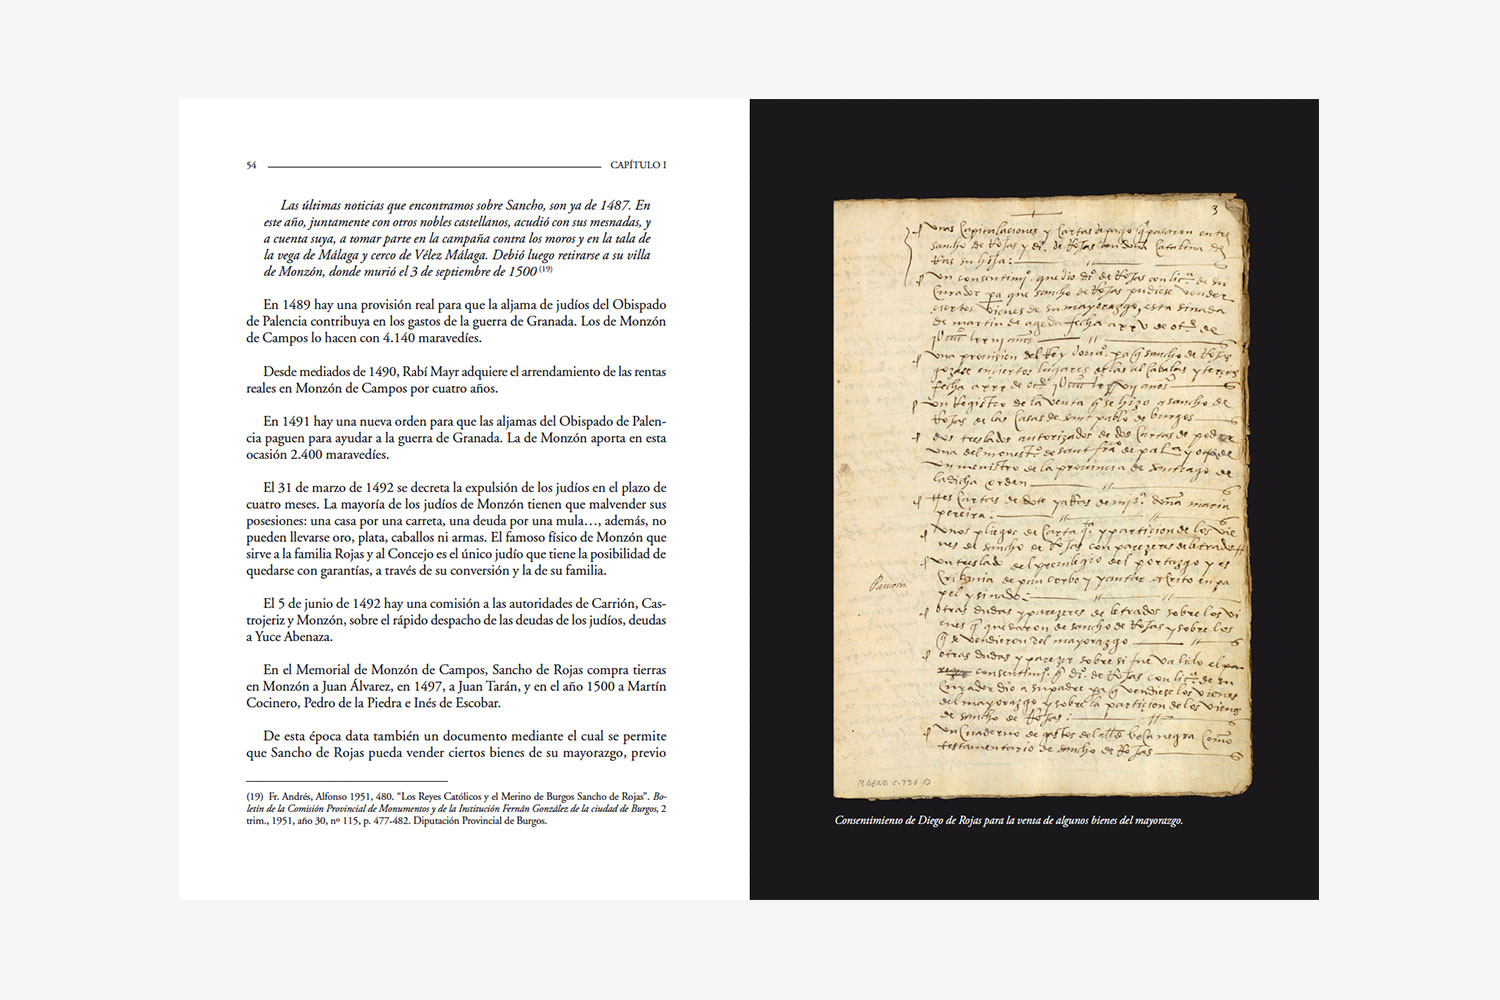 54 CAPÍTULO I
Las últimas noticias que encontramos sobre Sancho, son ya de 1487. En
este año, juntamente con otros nobles castellanos, acudió con sus mesnadas, y
a cuenta suya, a tomar parte en la campaña contra los moros y en la tala de
la vega de Málaga y cerco de Vélez Málaga. Debió luego retirarse a su villa
de Monzón, donde murió el 3 de septiembre de 1500 (19)
En 1489 hay una provisión real para que la aljama de judíos del Obispado
de Palencia contribuya en los gastos de la guerra de Granada. Los de Monzón
de Campos lo hacen con 4.140 maravedíes.
Desde mediados de 1490, Rabí Mayr adquiere el arrendamiento de las rentas
reales en Monzón de Campos por cuatro años.
En 1491 hay una nueva orden para que las aljamas del Obispado de Palen-
cia paguen para ayudar a la guerra de Granada. La de Monzón aporta en esta
ocasión 2.400 maravedíes.
El 31 de marzo de 1492 se decreta la expulsión de los judíos en el plazo de
cuatro meses. La mayoría de los judíos de Monzón tienen que malvender sus
posesiones: una casa por una carreta, una deuda por una mula…, además, no
pueden llevarse oro, plata, caballos ni armas. El famoso físico de Monzón que
sirve a la familia Rojas y al Concejo es el único judío que tiene la posibilidad de
quedarse con garantías, a través de su conversión y la de su familia.
El 5 de junio de 1492 hay una comisión a las autoridades de Carrión, Cas-
trojeriz y Monzón, sobre el rápido despacho de las deudas de los judíos, deudas
a Yuce Abenaza.
En el Memorial de Monzón de Campos, Sancho de Rojas compra tierras
en Monzón a Juan Álvarez, en 1497, a Juan Tarán, y en el año 1500 a Martín
Cocinero, Pedro de la Piedra e Inés de Escobar.
De esta época data también un documento mediante el cual se permite
que Sancho de Rojas pueda vender ciertos bienes de su mayorazgo, previo
(19) Fr. Andrés, Alfonso 1951, 480. “Los Reyes Católicos y el Merino de Burgos Sancho de Rojas”. Bo-
letín de la Comisión Provincial de Monumentos y de la Institución Fernán González de la ciudad de Burgos, 2
trim., 1951, año 30, nº 115, p. 477-482. Diputación Provincial de Burgos.
3
unas Capitulaciones y Cartas de pago q pasaron entre
sancho de Rojas y di.º de Rojas con doña Catalina de
su hija:
un consentimi.º que dio di.º de Rojas con lic.ª de su
Curador pa que sancho de Rojas pudiese vender
ciertos vienes de su mayorazgo, esta sinada
de martin de fecha a xxv de ot.e de
una provision del Rey pa q sancho de Rojas
gozase en ciertos lugares
un Registro de la venta q se hizo a sancho de
Rojas de las Casas de san pablo de burgos
dos treslados autorizados de dos Cartas de poder
un ministro de la provincia de santiago de
la dicha orden
tres Cartas de dote doña maria
pereira:
unos pliegos de y particion de los vie
nes de sancho de Rojas con parezeres de letrados
un treslado del previlegio del portazgo y es
Crivania de pan corbo y yantar escrito en pa
pel y sinado:
otras dudas y parezeres de letrados sobre los vi
enes q quedaron de sancho de Rojas y sobre los
q se vendieron del mayorazgo
otras dudas y parezer sobre si fue valido el
consentimi.º q di.º de Rojas con lic.ª de su
Curador dio a su padre pa q vendiese los vienes
del mayorazgo y sobre la particion de los vienes
de sancho de Rojas:
un Cuaderno de gastos de negra Como
testamentario de sancho de Rojas
Consentimiento de Diego de Rojas para la venta de algunos bienes del mayorazgo.